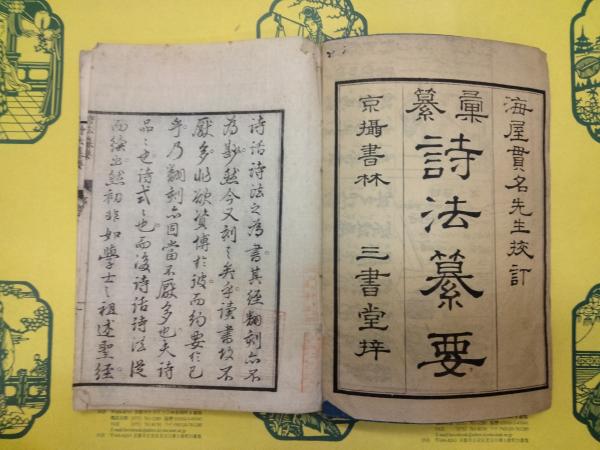 海屋貫名先生挍訂
彙纂
詩法纂要
京攝書林 三書堂梓
詩話詩法之為書其經翻刻亦不
為尠然今又刻之矣乎讀書故不
厭多非欲資博於彼而約要於己
乎乃翻刻亦固當不厭多也夫詩
品之也詩式之也而後詩話詩法從
而續出然初非如學士之祖述聖經